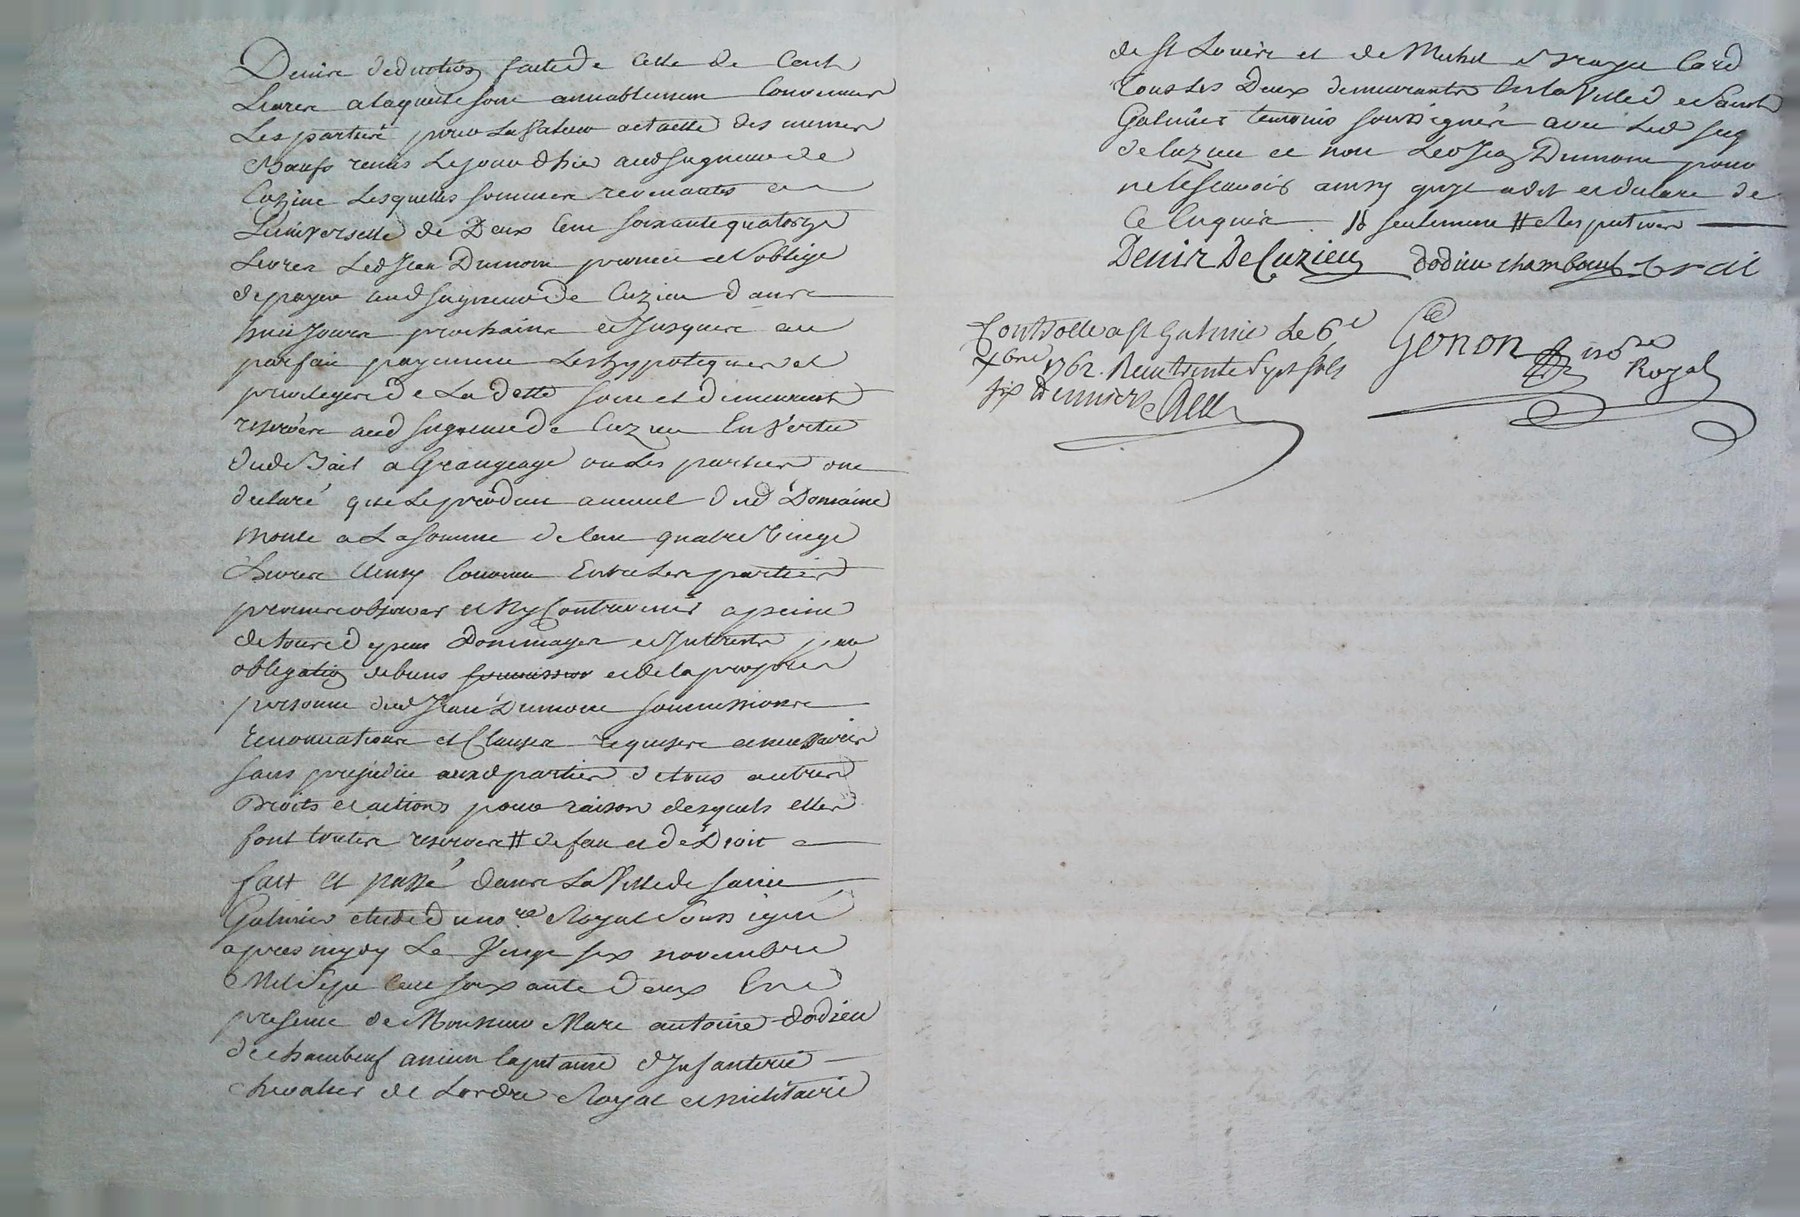 Denier deduction faitede Celle de Cent
Livres alaquelle sont amiablement Convenues
Les parties pour La Valeur actuelle des mesmes
Bœufs remis Lejourdhuy aud seigneur de
Cuzieu Lesquelles sommes revenantes a
Luniverselle de Deux Cent soixante quatorze
Livres Led Jean Dumont promet et soblige
de payer aud seigneur de Cuzieu dans
huit Jours prochains et Jusques au
parfait payement Les hypoteques et
privileges de La dette sont et demeurent
reservés aud seigneur de Cuzieu En Vertu
dud Bail a Grangeage ou Les parties ont
declaré que Le produit annuel dud Domaine
monte a La somme de Cent quatre Vingt
Livres Ainsy Convenu Entre Les parties
promis observer et Ny Contrevenir a peine
de tous depens Dommages et Interests par
obligation de biens soumission et de la propre
personne dud Jean Dumont soumissions
renonciations et Clauses requises et necessaires
sans prejudice auxd parties de tous autres
Droits et actions pour raison desquels elles
font toutes reserves # de fait et de Droit
fait et passé dans La Ville de saint
Galmier etude du nore Royal Soussigné
apres midy Le Vingt six novembre
Mil Sept Cent soixante Deux En
presence de Monsieur Marc antoine Dodieu
de chambeuf ancien Capitaine d'Infanterie
chevalier de Lordre Royal et militaire
de St Louis et de Michel
tous Les Deux demeurants En la Ville de Saint
Galmier temoins soussignés avec Led seig
de Cuzieu et non Led Jean Dumont pour
ne le scavoir ainsy quil a dit et declaré de
Ce Enquis seulement # et les parties
Denis De Cuzieu Dodieu chambeuf
Controllé a St Galmier Le 6e
xbre 1762. Recu trente Sept sols
six Deniers
Gonon nore
Royal